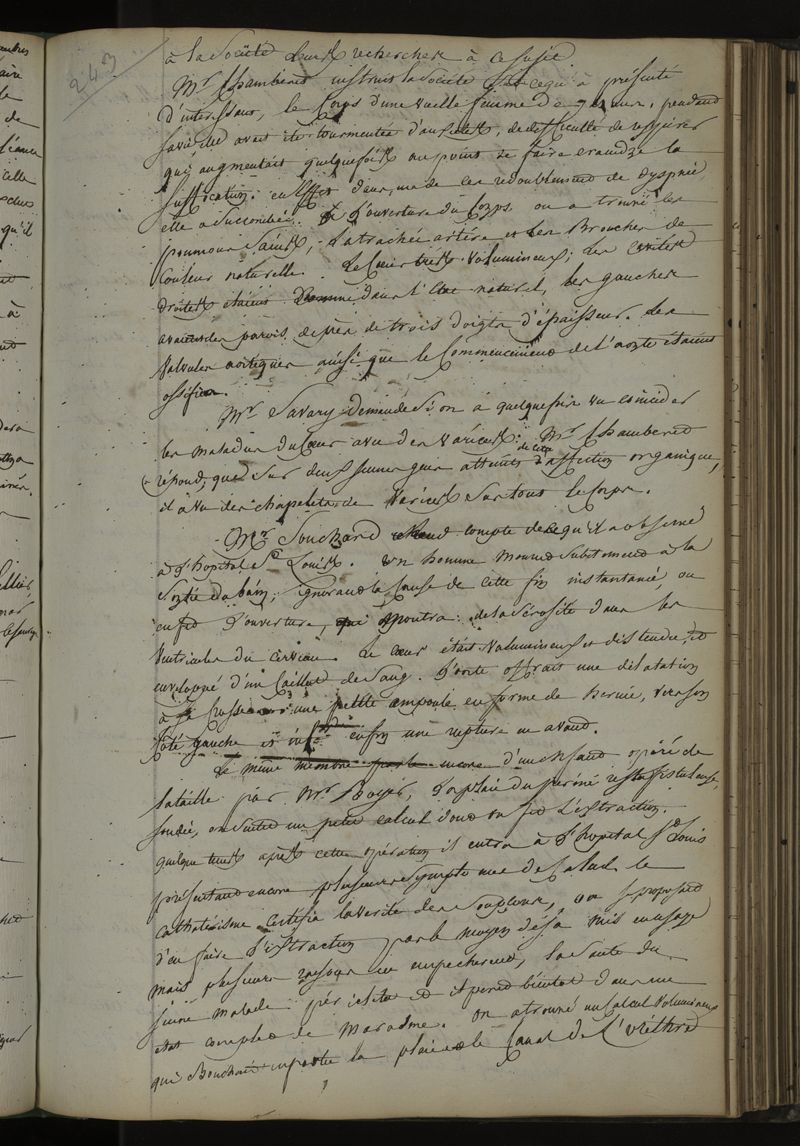 243
à la Société leurs recherches à ce sujet.
Mr Chamberet instruit la Société de ce qu'a présenté
d'intéressant, le Corps d'une vieille femme de pendant
sa vie elle avait été tourmentée d'anxiétés, de difficulté de respirer
qui augmentait quelquefois au point de faire craindre la
suffocation. en effet dans un de ces redoublements de dyspnée,
elle a succombé. à l'ouverture du Corps on a trouvé les
poumons sains, la trachée artère et les Bronches de
Couleur naturelle. Le Cœur très volumineux; les cavités
droites étaient comme dans l'état naturel, les gauches
avaient des parois de près de trois doigts d'épaisseur. les
Valvules aortiques ainsi que le Commencement de l'aorte étaient
ossifiées.
Mr Savary demande si on a quelquefois vu coincider
les maladies du Cœur avec des varices: Mr Chamberet
répond, que sur deux jeunes gens atteints de cette affection organique,
il a vu des chapelets de Varices sur tout le corps.
Mr Souchard rend compte de ce qu'il a observé
à l'hopital St Louis. un homme mourut subitement à la
sortie du bain; ignorant la Cause de cette fin instantanée, on
en fit l'ouverture, qui montra de la sérosité dans les
Ventricules du cerveau. Le cœur était volumineux et distendu, et
enveloppé d'un Caillot de sang. l'aorte offrait une dilatation
à sa crosse une petite ampoule en forme de hernie, vers son
côté gauche et enfin une rupture en avant.
Le même membre parle encore d'un enfant opéré de
la taille par Mr Boyer, la plaie du périné resta fistuleuse,
sondée, on sentit un petit calcul dont on fit l'extraction.
quelque tems après cette opération il entra à l'hopital St Louis
présentant encore plusieurs symptomes de Calcul. le
cathétérisme certifia la vérité des soupçons, on se proposait
d'en faire l'extraction par le moyen déjà mis en usage
mais plusieurs raisons en empecherent, la santé du
jeune malade périclita et il périt bientot dans un
état complet de Marasme. on a trouvé un calcul volumineux
qui Bouchait la plaie et le Canal de l'uréthre